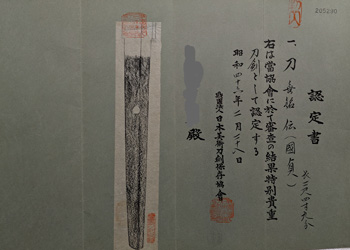 205290
認定書
一、刀 無銘 伝(國貞)
長二尺四寸
右は當協會に於て審査の結果特別貴重
刀剣として認定する
昭和四十六年二月二十八日
財團法人日本美術刀剣保存協會
殿